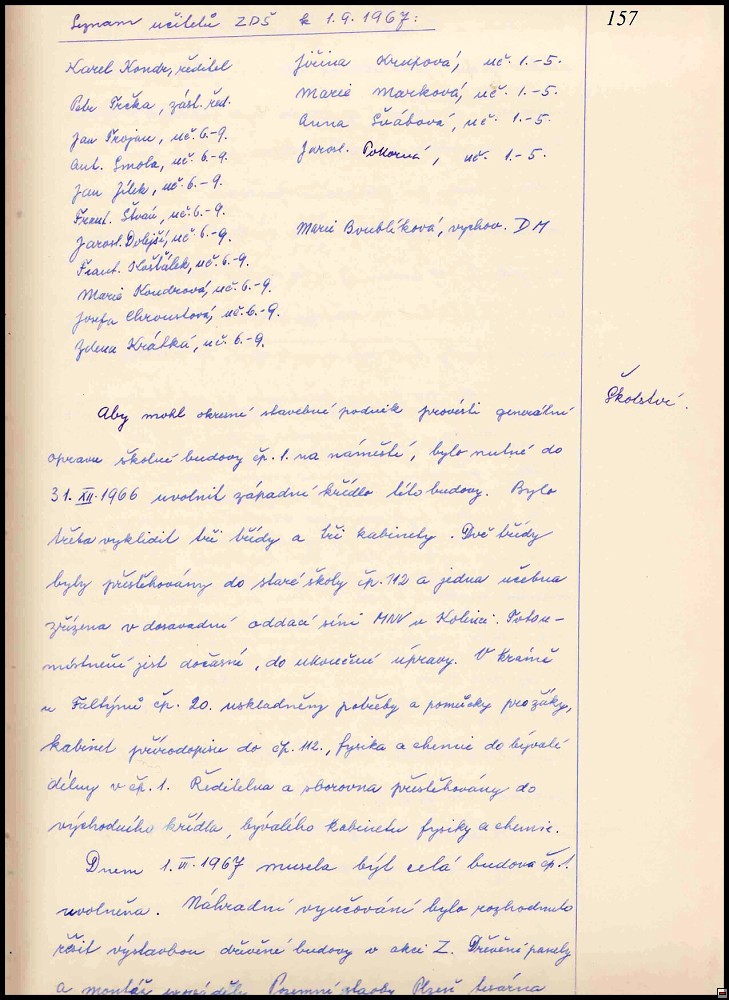 Seznam učitelů ZDŠ k 1.9.1967:
157
Karel Kondr, ředitel
Petr Trčka, zást. řed.
Jan Trojan, uč. 6.-9.
Ant. Smola, uč. 6.-9.
Jan Jílek, uč. 6.-9.
Frant. Štván, uč. 6.-9.
Jarosl. Dolejší, uč. 6.-9.
Frant. Košťálek, uč. 6.-9.
Marie Kondrová, uč. 6.-9.
Josefa Chroustová, uč. 6.-9.
Zdena Krátká, uč. 6.-9.
Jiřina Krupová, uč. 1.-5.
Marie Marková, uč. 1.-5.
Anna Švábová, uč. 1.-5.
Jarosl. Pokorná, uč. 1.-5.
Marie Boublíková, vychov. DM
Školství.
Aby mohl okresní stavební podnik provésti generální
opravu školní budovy čp. 1. na náměstí, bylo nutné do
31. XII. 1966 uvolnit západní křídlo této budovy. Bylo
třeba vyklidit tři třídy a tři kabinety. Dvě třídy
byly přestěhovány do staré školy čp. 112 a jedna učebna
zřízena v dosavadní oddací síni MNV v Kolinci. Toto u-
místnění jest dočasné, do ukončení úpravy. V krámě
u Faltýnů čp. 20. uskladněny potřeby a pomůcky pro žáky,
kabinet přírodopisu do čp. 112., fysika a chemie do bývalé
dílny v čp. 1. Ředitelna a sborovna přestěhovány do
východního křídla, bývalého kabinetu fysiky a chemie.
Dnem 1. VI. 1967 musela být celá budova čp. 1.
uvolněna. Náhradní vyučování bylo rozhodnuto
řešit výstavbou dřevěné budovy v akci Z. Dřevěné panely
a montáž prováděly Pozemní stavby Plzeň tesárna